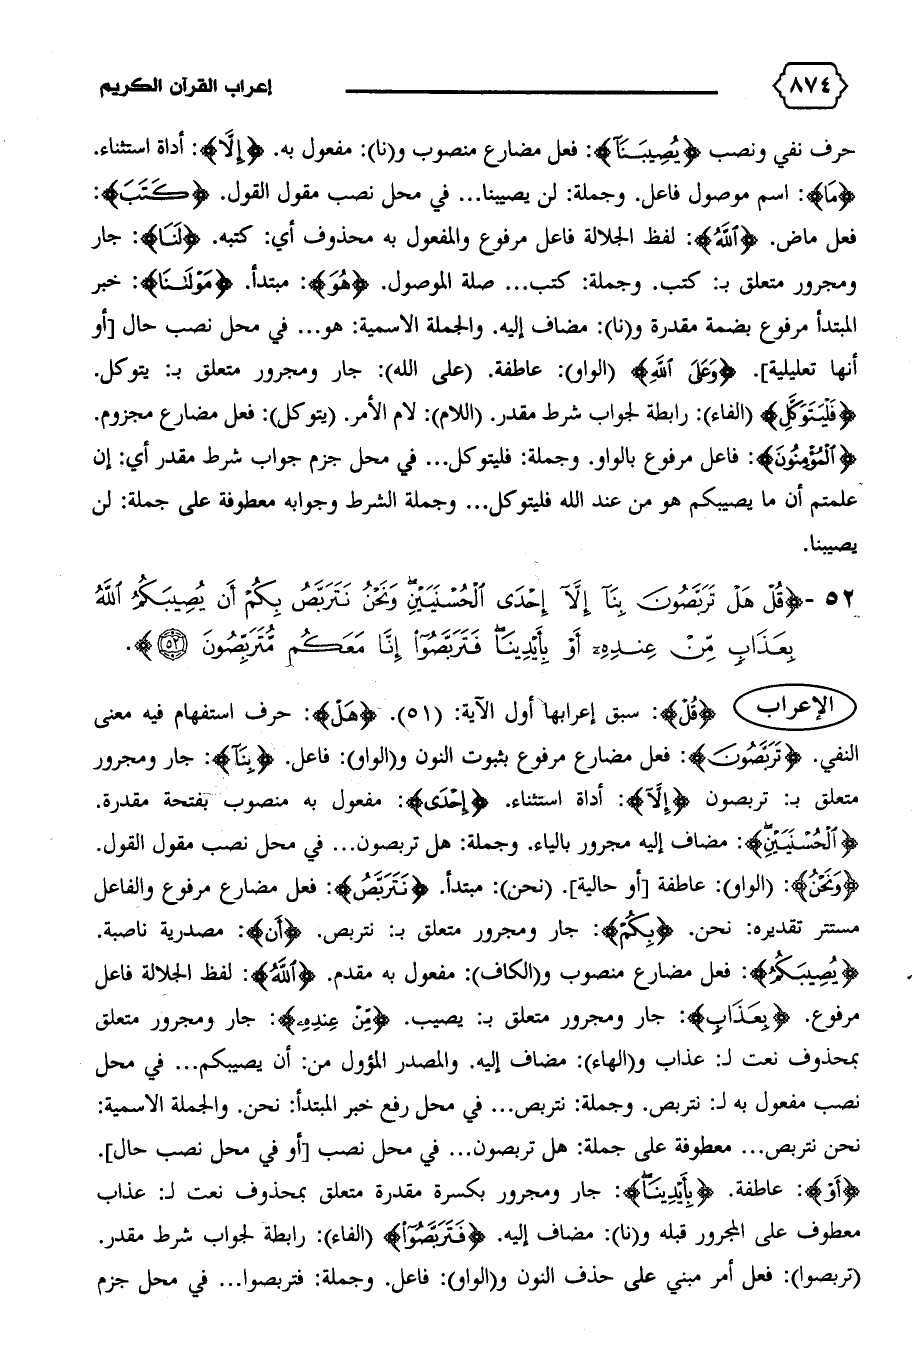 ٨٧٤
إعراب القرآن الكريم
حرف نفي ونصب ﴿يُصِيبَنَآ﴾: فعل مضارع منصوب و(نا): مفعول به. ﴿إِلَّا﴾: أداة استثناء.
﴿مَا﴾: اسم موصول فاعل. وجملة: لن يصيبنا... في محل نصب مقول القول. ﴿كَتَبَ﴾:
فعل ماض. ﴿ٱللَّهُ﴾: لفظ الجلالة فاعل مرفوع والمفعول به محذوف أي: كتبه. ﴿لَنَا﴾: جار
ومجرور متعلق بـ: كتب. وجملة: كتب... صلة الموصول. ﴿هُوَ﴾: مبتدأ. ﴿مَوْلَىٰنَا﴾: خبر
المبتدأ مرفوع بضمة مقدرة و(نا): مضاف إليه. والجملة الاسمية: هو... في محل نصب حال [أو
أنها تعليلية]. ﴿وَعَلَى ٱللَّهِ﴾ (الواو): عاطفة. (على الله): جار ومجرور متعلق بـ: يتوكل.
﴿فَلْيَتَوَكَّلِ﴾ (الفاء): رابطة لجواب شرط مقدر. (اللام): لام الأمر. (يتوكل): فعل مضارع مجزوم.
﴿ٱلْمُؤْمِنُونَ﴾: فاعل مرفوع بالواو. وجملة: فليتوكل... في محل جزم جواب شرط مقدر أي: إن
علمتم أن ما يصيبكم هو من عند الله فليتوكل... وجملة الشرط وجوابه معطوفة على جملة: لن
يصيبنا.
٥٢ - ﴿قُلْ هَلْ تَرَبَّصُونَ بِنَآ إِلَّآ إِحْدَى ٱلْحُسْنَيَيْنِۖ وَنَحْنُ نَتَرَبَّصُ بِكُمْ أَن يُصِيبَكُمُ ٱللَّهُ
بِعَذَابٍ مِّنْ عِندِهِۦٓ أَوْ بِأَيْدِينَاۖ فَتَرَبَّصُوٓا۟ إِنَّا مَعَكُم مُّتَرَبِّصُونَ ٥٢﴾.
الإعراب ﴿قُلْ﴾: سبق إعرابها أول الآية: (٥١). ﴿هَلْ﴾: حرف استفهام فيه معنى
النفي. ﴿تَرَبَّصُونَ﴾: فعل مضارع مرفوع بثبوت النون و(الواو): فاعل. ﴿بِنَآ﴾: جار ومجرور
متعلق بـ: تربصون ﴿إِلَّآ﴾: أداة استثناء. ﴿إِحْدَى﴾: مفعول به منصوب بفتحة مقدرة.
﴿ٱلْحُسْنَيَيْنِۖ﴾: مضاف إليه مجرور بالياء. وجملة: هل تربصون... في محل نصب مقول القول.
﴿وَنَحْنُ﴾: (الواو): عاطفة [أو حالية]. (نحن): مبتدأ. ﴿نَتَرَبَّصُ﴾: فعل مضارع مرفوع والفاعل
مستتر تقديره: نحن. ﴿بِكُمْ﴾: جار ومجرور متعلق بـ: نتربص. ﴿أَن﴾: مصدرية ناصبة.
﴿يُصِيبَكُمُ﴾: فعل مضارع منصوب و(الكاف): مفعول به مقدم. ﴿ٱللَّهُ﴾: لفظ الجلالة فاعل
مرفوع. ﴿بِعَذَابٍ﴾: جار ومجرور متعلق بـ: يصيب. ﴿مِّنْ عِندِهِۦٓ﴾: جار ومجرور متعلق
بمحذوف نعت لـ: عذاب و(الهاء): مضاف إليه. والمصدر المؤول من: أن يصيبكم... في محل
نصب مفعول به لـ: نتربص. وجملة: نتربص... في محل رفع خبر المبتدأ: نحن. والجملة الاسمية:
نحن نتربص... معطوفة على جملة: هل تربصون... في محل نصب [أو في محل نصب حال].
﴿أَوْ﴾: عاطفة. ﴿بِأَيْدِينَاۖ﴾: جار ومجرور بكسرة مقدرة متعلق بمحذوف نعت لـ: عذاب
معطوف على المجرور قبله و(نا): مضاف إليه. ﴿فَتَرَبَّصُوٓا۟﴾ (الفاء): رابطة لجواب شرط مقدر.
(تربصوا): فعل أمر مبني على حذف النون و(الواو): فاعل. وجملة: فتربصوا... في محل جزم